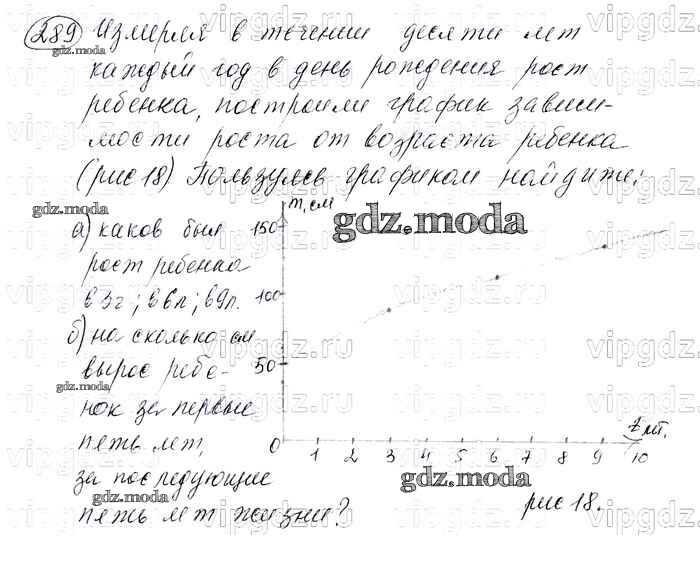 289 Измеряя в течении десяти лет
каждый год в день рождения рост
ребенка, построили график зависи-
мости роста от возраста ребенка
(рис 18) Пользуясь графиком найдите:
а) каков был
рост ребенка
в 3г; в 6л; в 9л.
б) на сколько см
вырос ребе-
нок за первые
пять лет,
за последующие
пять лет жизни?
см
150
100
50
0 1 2 3 4 5 6 7 8 9 10
лет.
рис 18.
gdz.moda
gdz.moda
gdz.moda
gdz.moda
gdz.moda
gdz.moda
vipgdz.ru